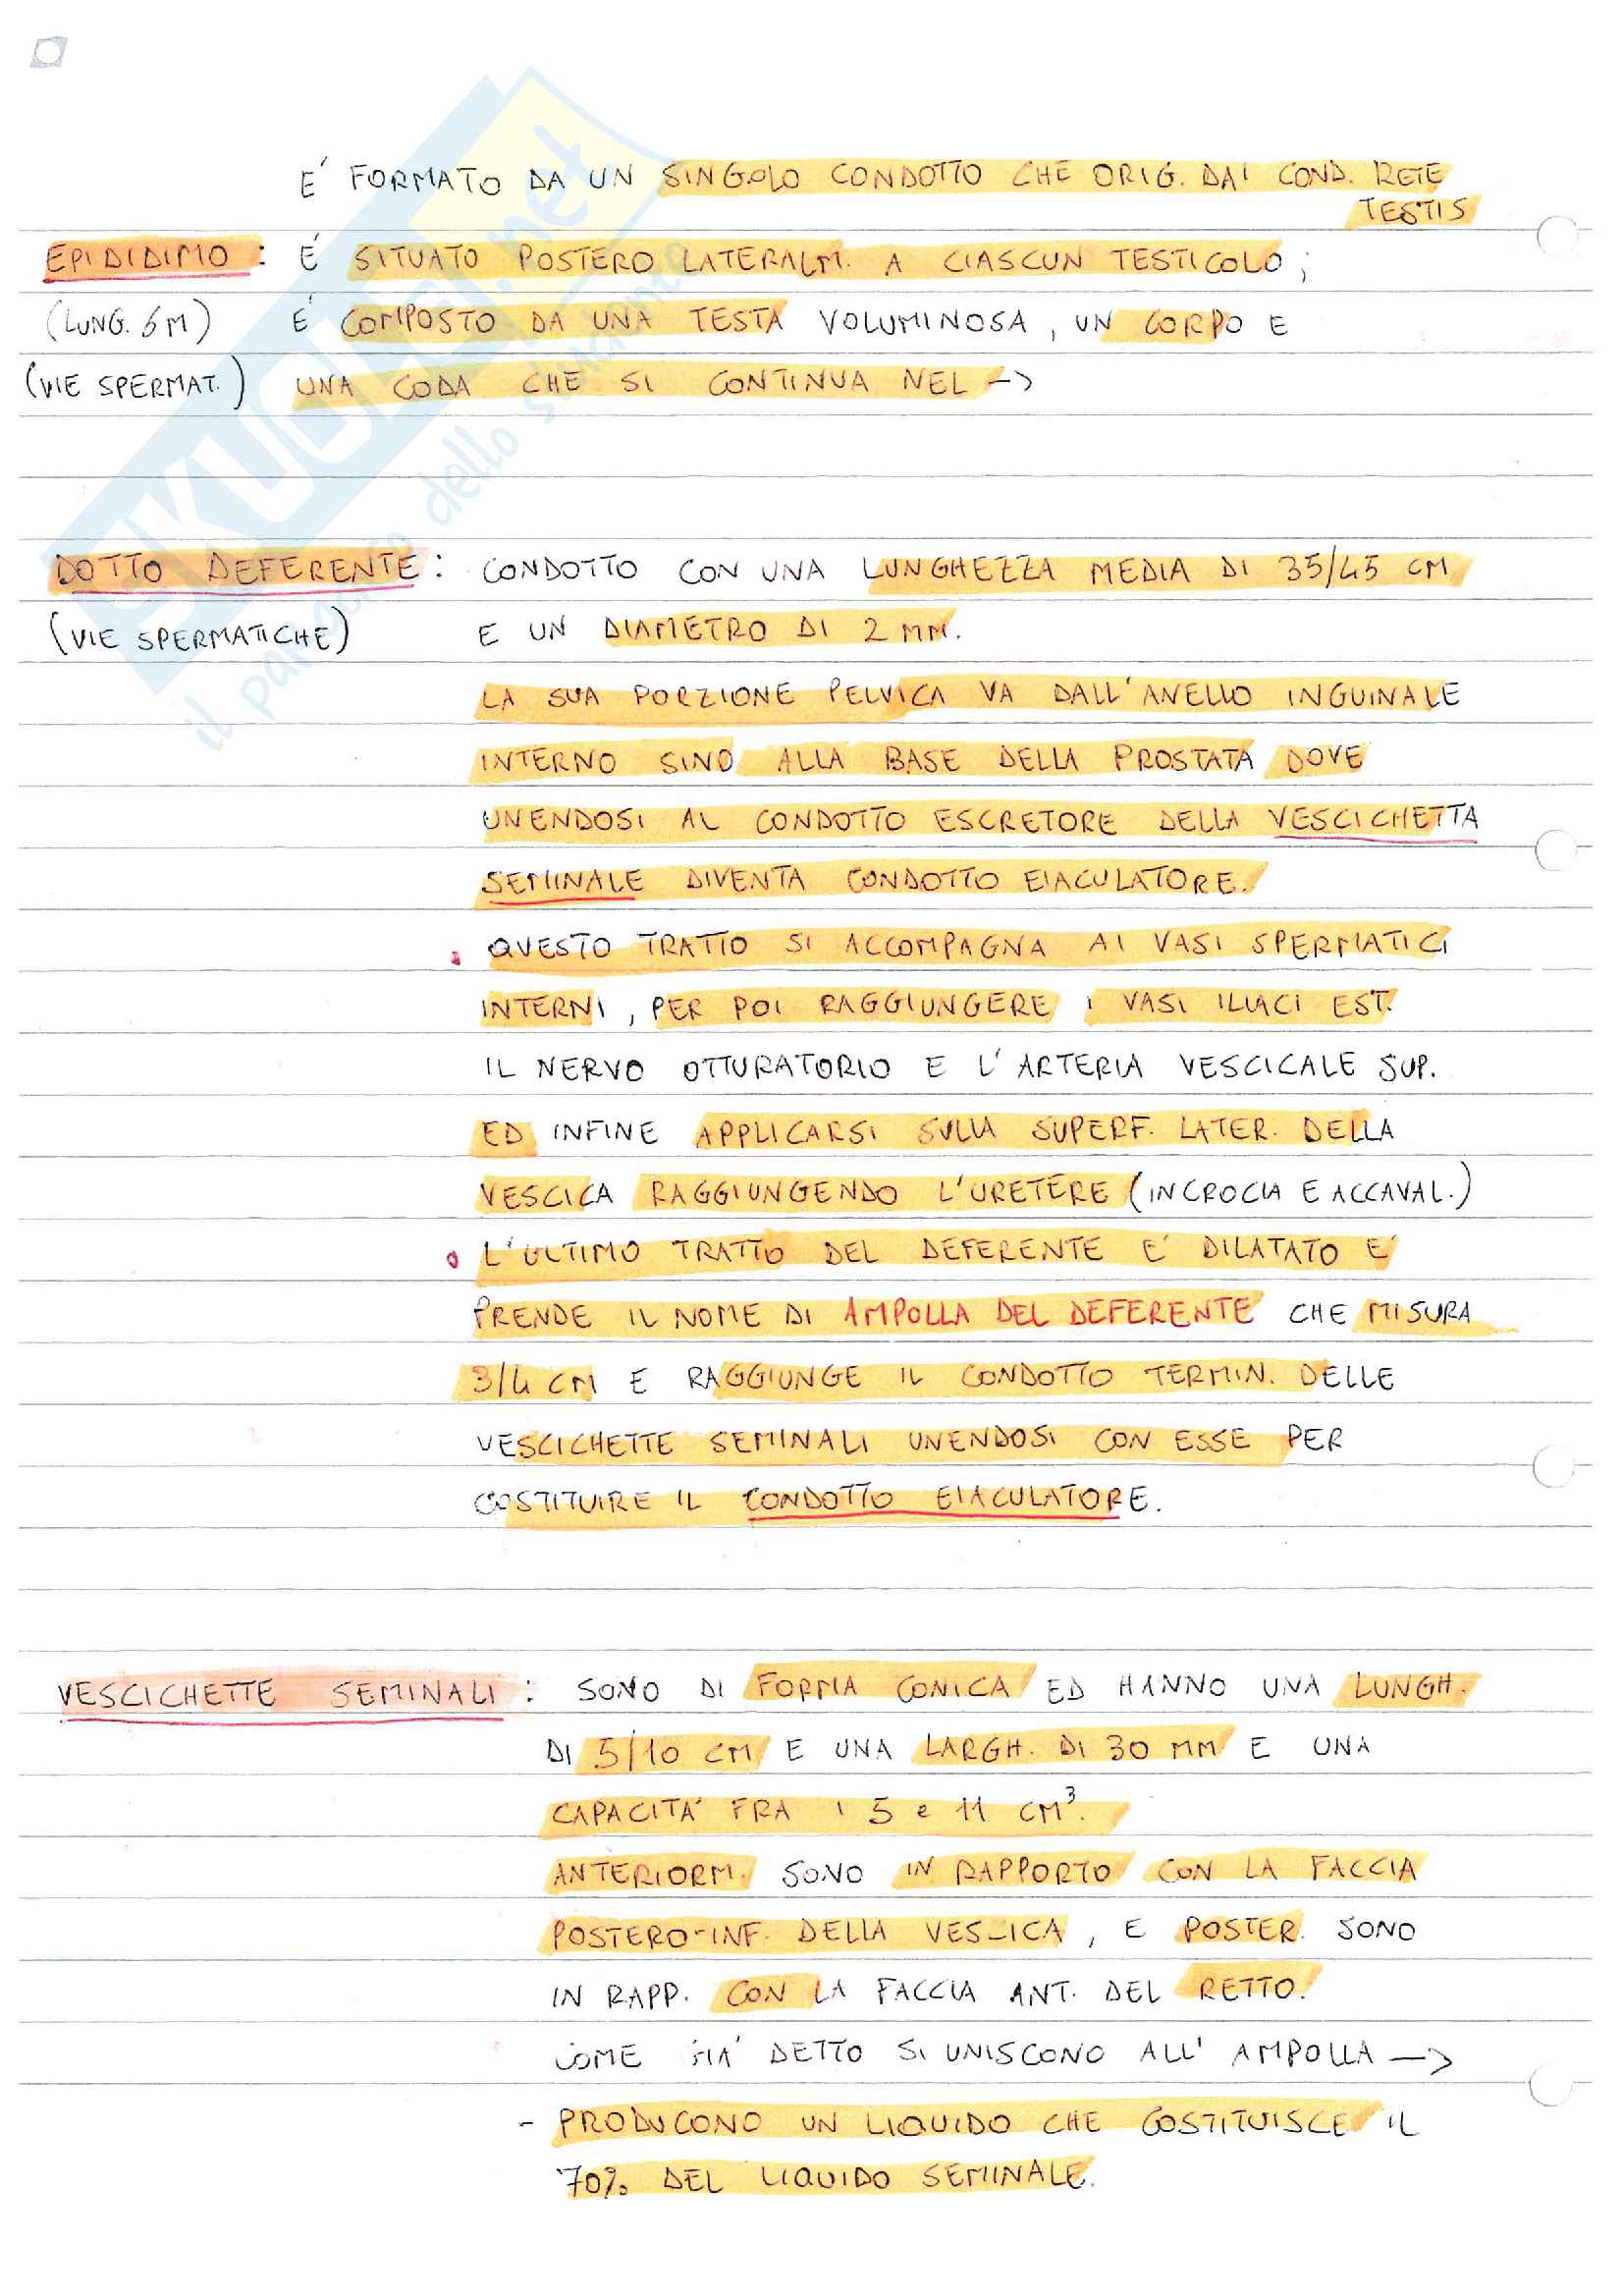 E' FORMATO DA UN SINGOLO CONDOTTO CHE ORIG. DAI COND. RETE
TESTIS
EPIDIDIMO : E' SITUATO POSTERO LATERALM. A CIASCUN TESTICOLO ;
(LUNG. 6 M) E' COMPOSTO DA UNA TESTA VOLUMINOSA , UN CORPO E
(VIE SPERMAT.) UNA CODA CHE SI CONTINUA NEL ->
DOTTO DEFERENTE : CONDOTTO CON UNA LUNGHEZZA MEDIA DI 35/45 CM
(VIE SPERMATICHE) E UN DIAMETRO DI 2 MM.
LA SUA PORZIONE PELVICA VA DALL'ANELLO INGUINALE
INTERNO SINO ALLA BASE DELLA PROSTATA DOVE
UNENDOSI AL CONDOTTO ESCRETORE DELLA VESCICHETTA
SEMINALE DIVENTA CONDOTTO EIACULATORE.
• QUESTO TRATTO SI ACCOMPAGNA AI VASI SPERMATICI
INTERNI , PER POI RAGGIUNGERE I VASI ILIACI EST.
IL NERVO OTTURATORIO E L'ARTERIA VESCICALE SUP.
ED INFINE APPLICARSI SULLA SUPERF. LATER. DELLA
VESCICA RAGGIUNGENDO L'URETERE (INCROCIA E ACCAVAL.)
• L'ULTIMO TRATTO DEL DEFERENTE E' DILATATO E'
PRENDE IL NOME DI AMPOLLA DEL DEFERENTE CHE MISURA
3/4 CM E RAGGIUNGE IL CONDOTTO TERMIN. DELLE
VESCICHETTE SEMINALI UNENDOSI CON ESSE PER
COSTITUIRE IL CONDOTTO EIACULATORE.
VESCICHETTE SEMINALI : SONO DI FORMA CONICA ED HANNO UNA LUNGH.
DI 5/10 CM E UNA LARGH. DI 30 MM E UNA
CAPACITA' FRA I 5 e 11 CM³.
ANTERIORM. SONO IN RAPPORTO CON LA FACCIA
POSTERO-INF. DELLA VESCICA , E POSTER. SONO
IN RAPP. CON LA FACCIA ANT. DEL RETTO.
COME GIA' DETTO SI UNISCONO ALL' AMPOLLA ->
- PRODUCONO UN LIQUIDO CHE COSTITUISCE IL
70% DEL LIQUIDO SEMINALE.
SKUOLA.net
il paradiso dello studente